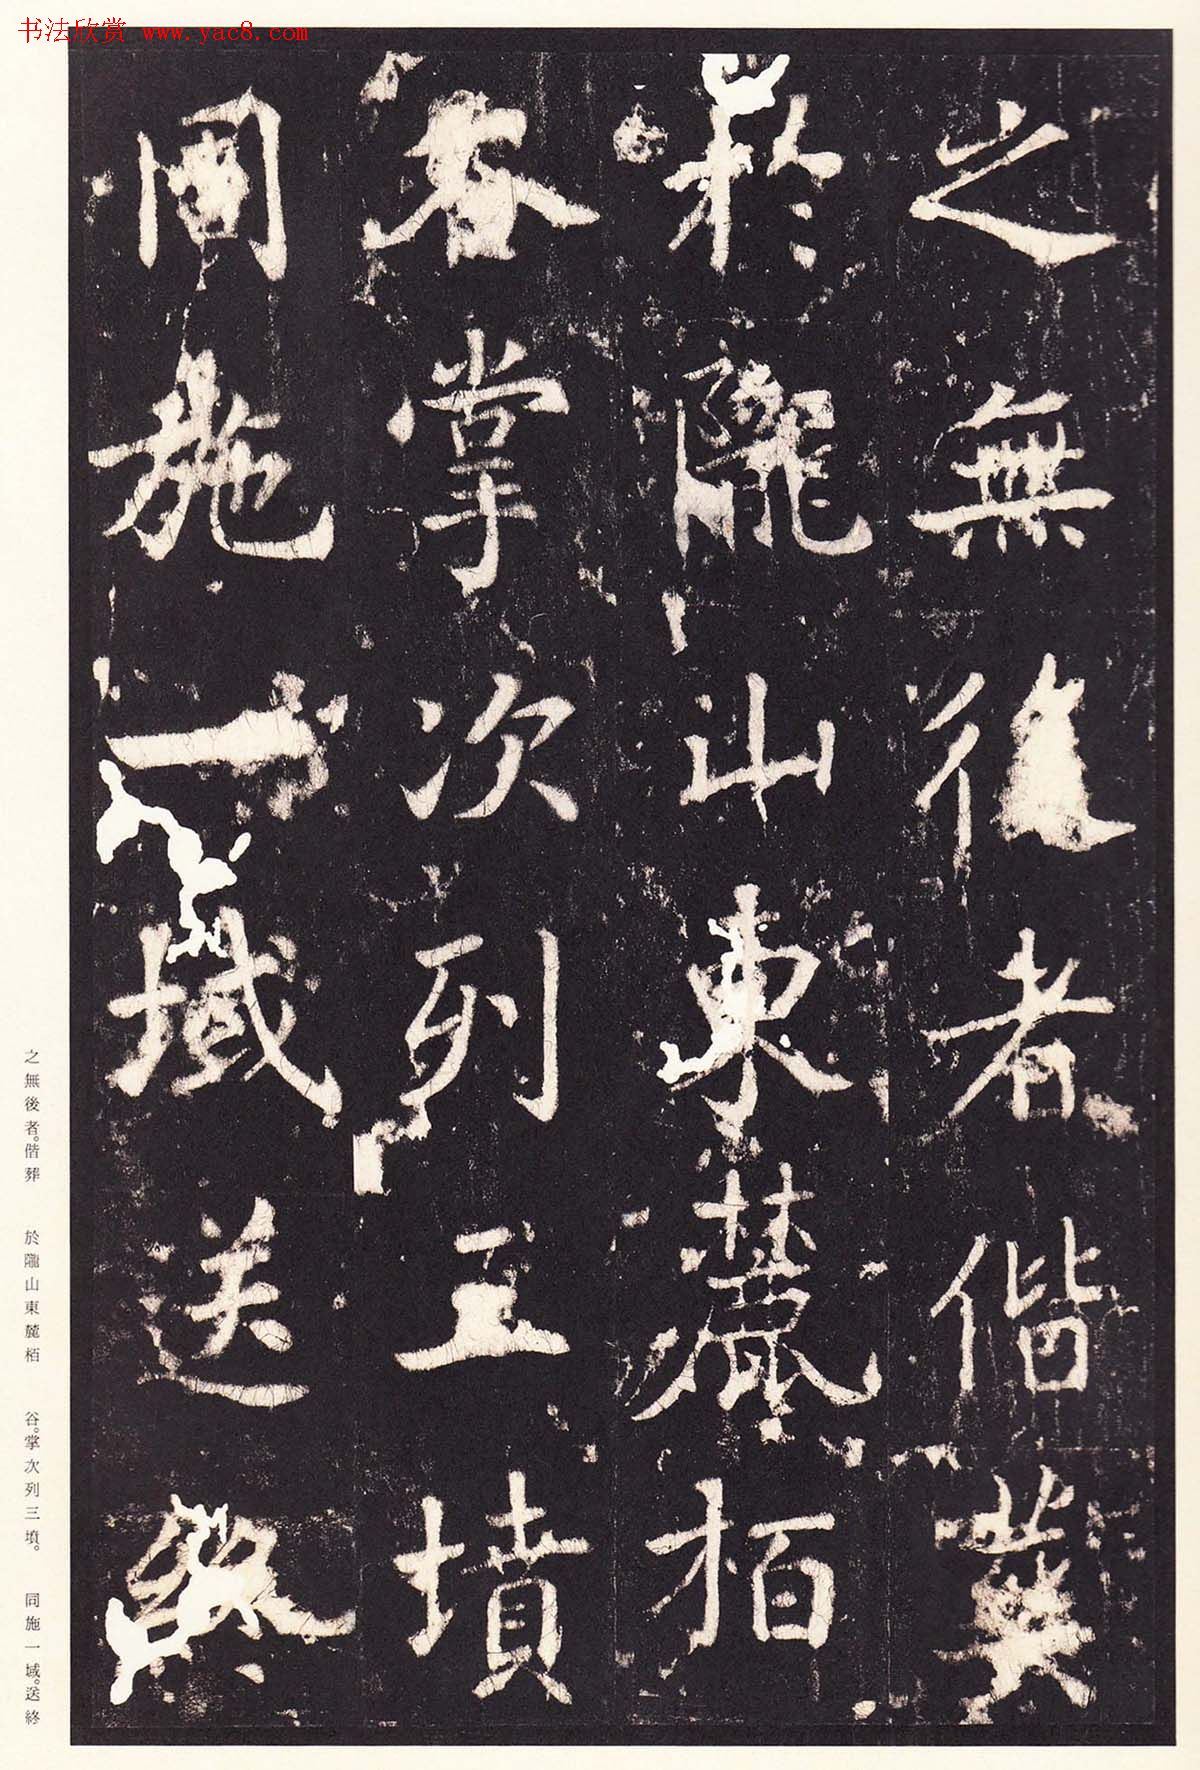 书法欣赏 www.yac8.com
之無後者偕葬
於隴山東麓栢
谷掌次列三墳
同施一域送終
之無後者。偕葬 於隴山東麓栢 谷。掌次列三墳。 同施一域。送終